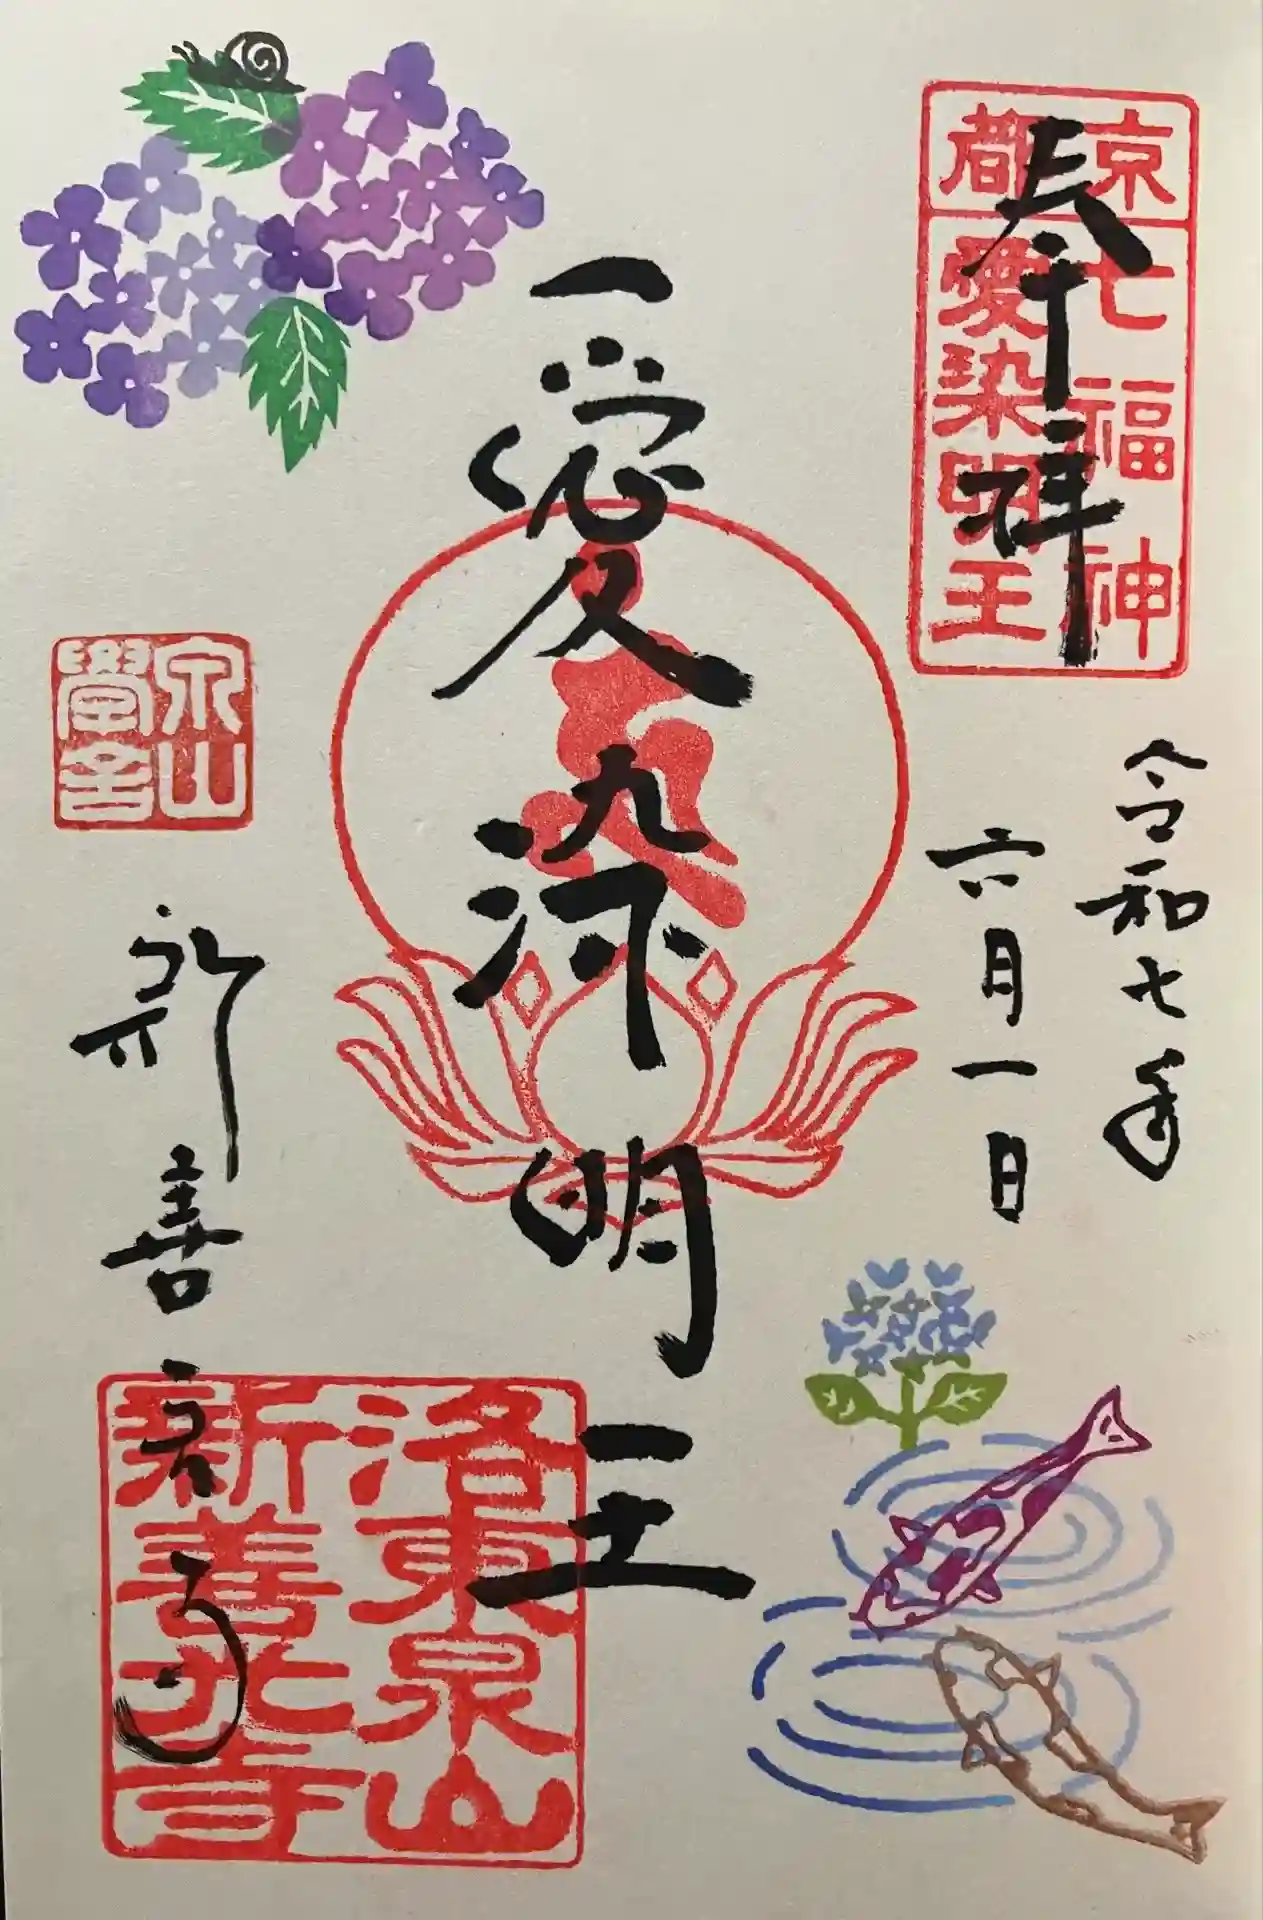 奉拝
京都
七福神
愛染明王
令和七年
六月一日
愛染明王
泉山
學舎
新善光寺
洛東泉山
新善光寺